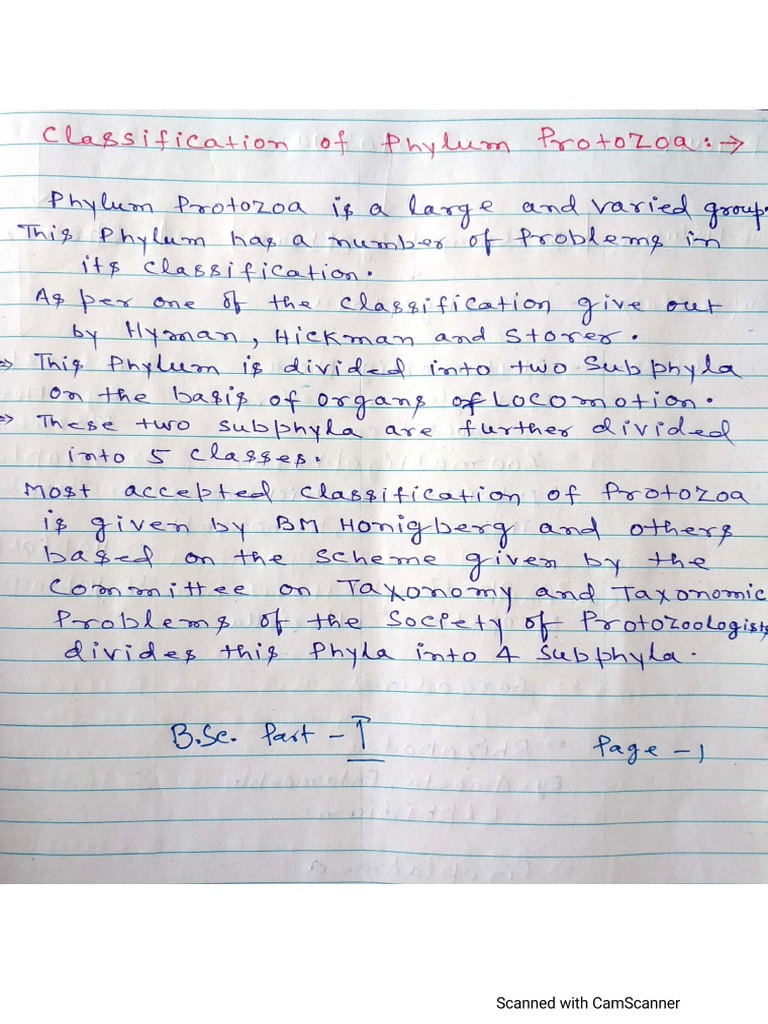 Classification of Phylum Protozoa :→
Phylum Protozoa is a large and varied group.
This Phylum has a number of Problems in
its classification.
As per one of the classification give out
by Hyman, Hickman and Storer.
⇒ This Phylum is divided into two Subphyla
on the basis of organs of Locomotion.
⇒ These two subphyla are further divided
into 5 classes.
Most accepted classification of Protozoa
is given by BM Honigberg and others
based on the scheme given by the
Committee on Taxonomy and Taxonomic
Problems of the Society of Protozoologists
divides this Phyla into 4 Subphyla.
B.Sc. Part - I
Page - 1
Scanned with CamScanner